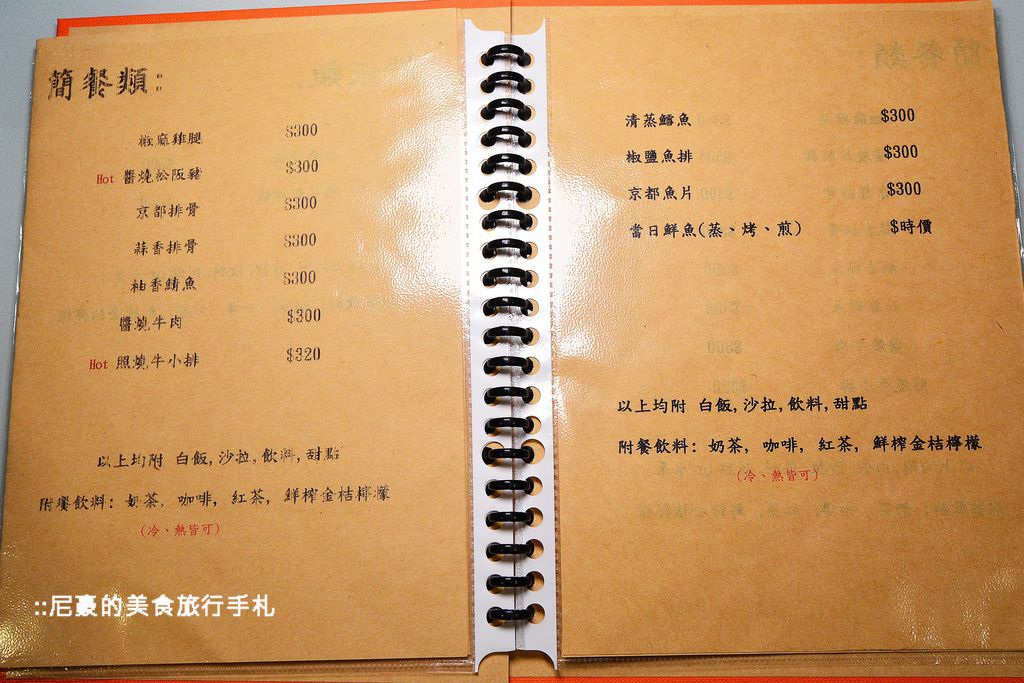 簡餐類:
椒麻雞腿 $300
Hot 醬燒松阪豬 $300
京都排骨 $300
蒜香排骨 $300
柚香鯖魚 $300
醬燒牛肉 $300
Hot 照燒牛小排 $320
以上均附 白飯,沙拉,飲料,甜點
附餐飲料: 奶茶, 咖啡, 紅茶, 鮮榨金桔檸檬
(冷、熱皆可)
清蒸鱈魚 $300
椒鹽魚排 $300
京都魚片 $300
當日鮮魚(蒸、烤、煎) $時價
以上均附 白飯,沙拉,飲料,甜點
附餐飲料: 奶茶, 咖啡, 紅茶, 鮮榨金桔檸檬
(冷、熱皆可)
::尼豪的美食旅行手札